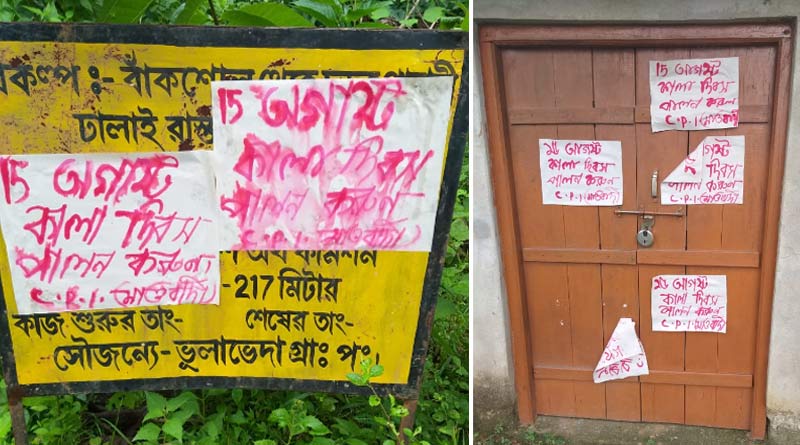 প্রকল্প :- বাঁকশোল
ঢালাই রাস্তা
15 অগাস্ট
কালা দিবস
পালন করুন
C.P.I.(মাওবাদী)
15 অগাস্ট
কালা দিবস
পালন করুন
C.P.I.(মাওবাদী)
-217 মিটার
কাজ শুরুর তাং-
শেষের তাং-
সৌজন্যে- ভুলাভেদা গ্রাঃ পঃ।
15 আগস্ট
কালা দিবস
পালন করুন
C.P.I.(মাওবাদী)
আগস্ট
কালা দিবস
পালন করুন
C.P.I.(মাওবাদী)
গস্ট
পালন করুন
C.P.I.(মাওবাদী)
আগস্ট
কালা দিবস
পালন করুন
C.P.I.(মাওবাদী)